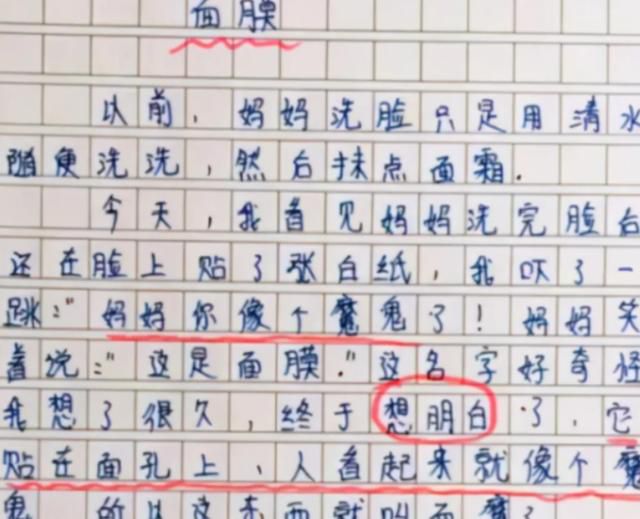 面膜
以前，妈妈洗脸只是用清水
随便洗洗，然后抹点面霜.
今天，我看见妈妈洗完脸后
还在脸上贴了张白纸，我吓了一
跳："妈妈你像个魔鬼了！妈妈笑
着说："这是面膜."这名字好奇怪
我想了很久，终于想明白了，它
贴在面孔上，人看起来就像个魔
鬼 所以这东西就叫面魔？